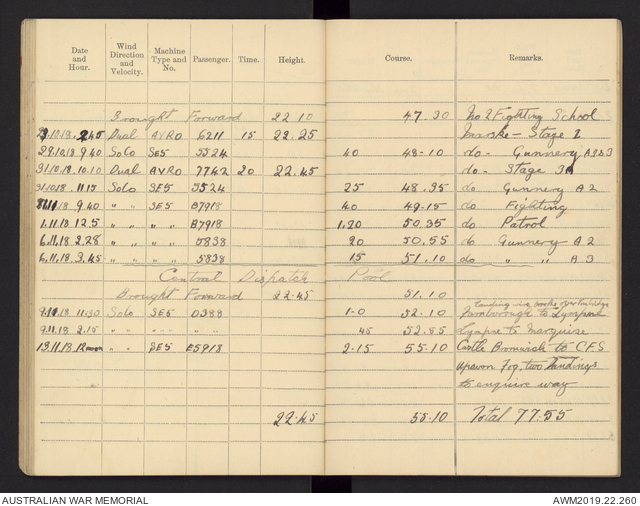 Date and Hour. Wind Direction and Velocity. Machine Type and No. Passenger. Time. Height. Course. Remarks.
Brought Forward 22 10 47.30 No 2 Fighting School
29.10.18. 2.45 Dual AVRO 6211 15 22.25 Marske - Stage 2
29.10.18 9.40 Solo SE5 5524 40 48-10 do - Gunnery A 2 & 3
31.10.18. 10.10 Dual AVRO 7742 20 22.45 do - Stage 3
31.10.18. 11.15 Solo SE5 5524 25 48.35 do Gunnery A 2
9.40 " " SE5 B7918 40 49.15 do Fighting
1.11.18 12.5 " " " " B7918 1.20 50.35 do Patrol
6.11.18 2.28 " " " " 5838 20 50.55 do Gunnery A 2
6.11.18 3.45 " " " " 5838 15 51.10 do " " A 3
Central Dispatch Pool
Brought Forward 22.45 51.10
Landing wire
11.30 Solo SE5 0388 1-0 52-10 Farnborough to Lympne
9.11.18 2.15 " " 45 52.55 Lympne to Marquise
13.11.18 " " SE5 E5918 2-15 55.10 Castle Bromwich to C.F.S
Upavon Fog, two landings
to enquire way
22.45 55.10 Total 77.55
AUSTRALIAN WAR MEMORIAL AWM2019.22.260